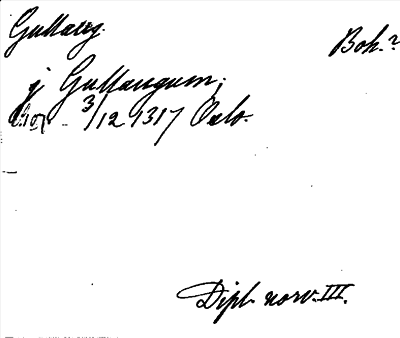 Gullaug.
Boh.?
j Gullaugum,
3/12 1317 Oslo.
Dipl. norv. III.